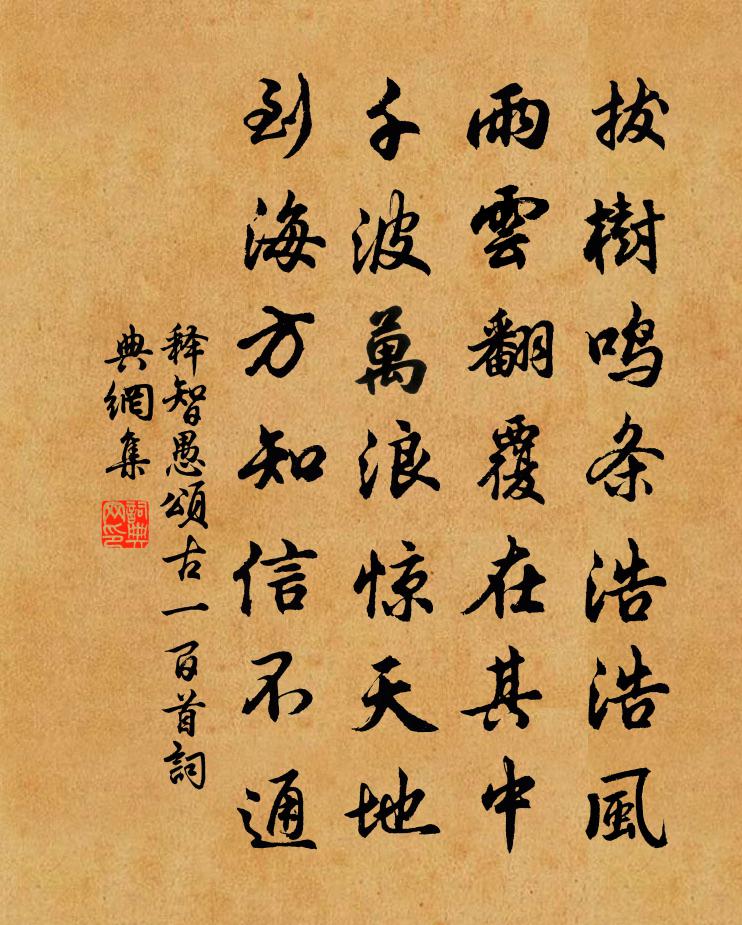 拔樹鸣条浩浩風
雨雲翻覆在其中
千波萬浪惊天地
到海方知信不通
释智愚頌古一百首詞
典網集
詞典網印